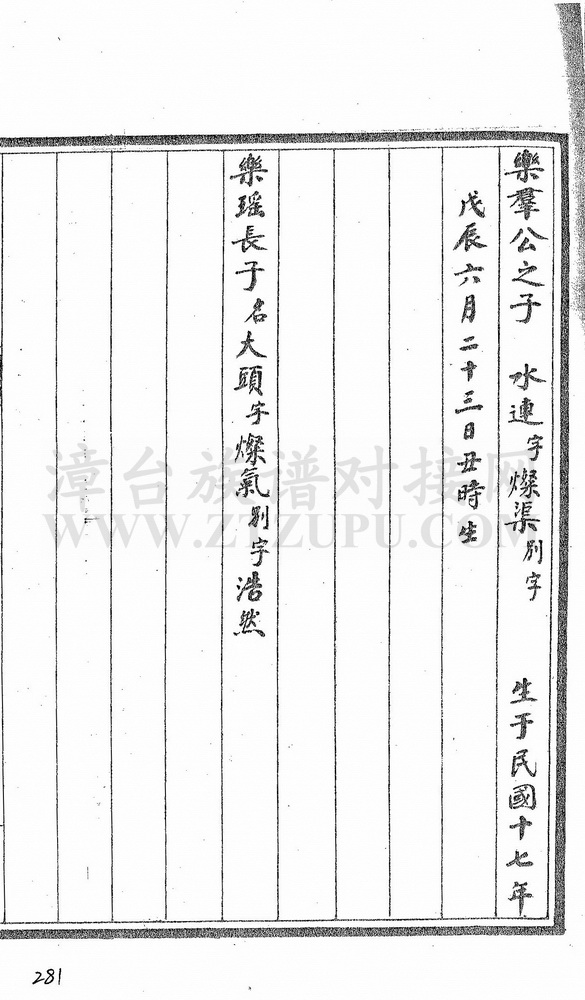 樂羣公之子 水連字燦渠別字 生于民國十七年
戊辰六月二十三日丑時生
樂瑶長子名大頭字燦氣別字浩然
漳台族谱对接网
WWW.ZTZUPU.COM
281